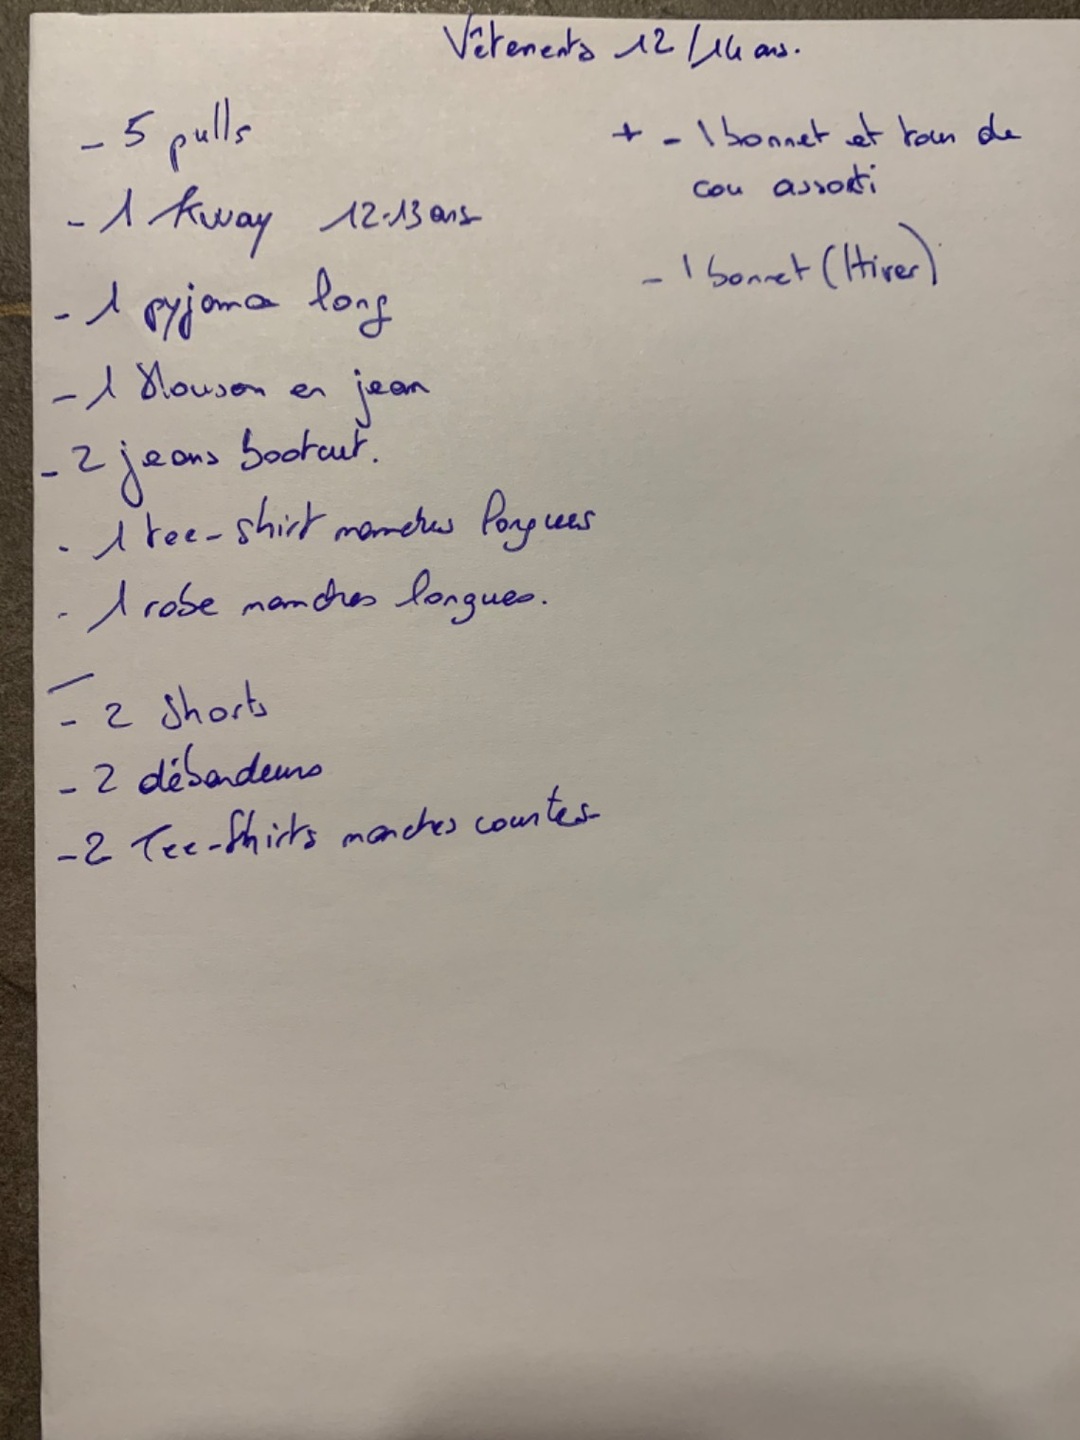 Vêtements 12/14 ans.
- 5 pulls
- 1 Kway 12-13 ans
- 1 pyjama long
- 1 blouson en jean
- 2 jeans bootcut.
- 1 tee-shirt manches longues
- 1 robe manches longues.
- 2 shorts
- 2 débardeurs
- 2 Tee-Shirts manches courtes
+ - 1 bonnet et tour de
cou assorti
- 1 bonnet (Hiver)